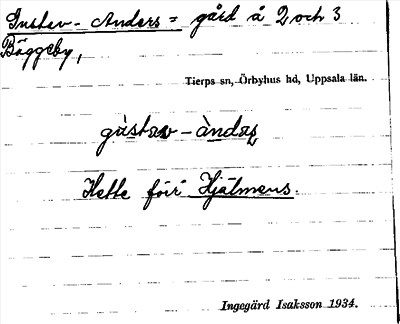 Gustav-Anders = gård å 2 och 3
Bäggeby,
Tierps sn, Örbyhus hd, Uppsala län.
gùstav-àndaʂ
Hette förr Hjälmens.
Ingegärd Isaksson 1934.